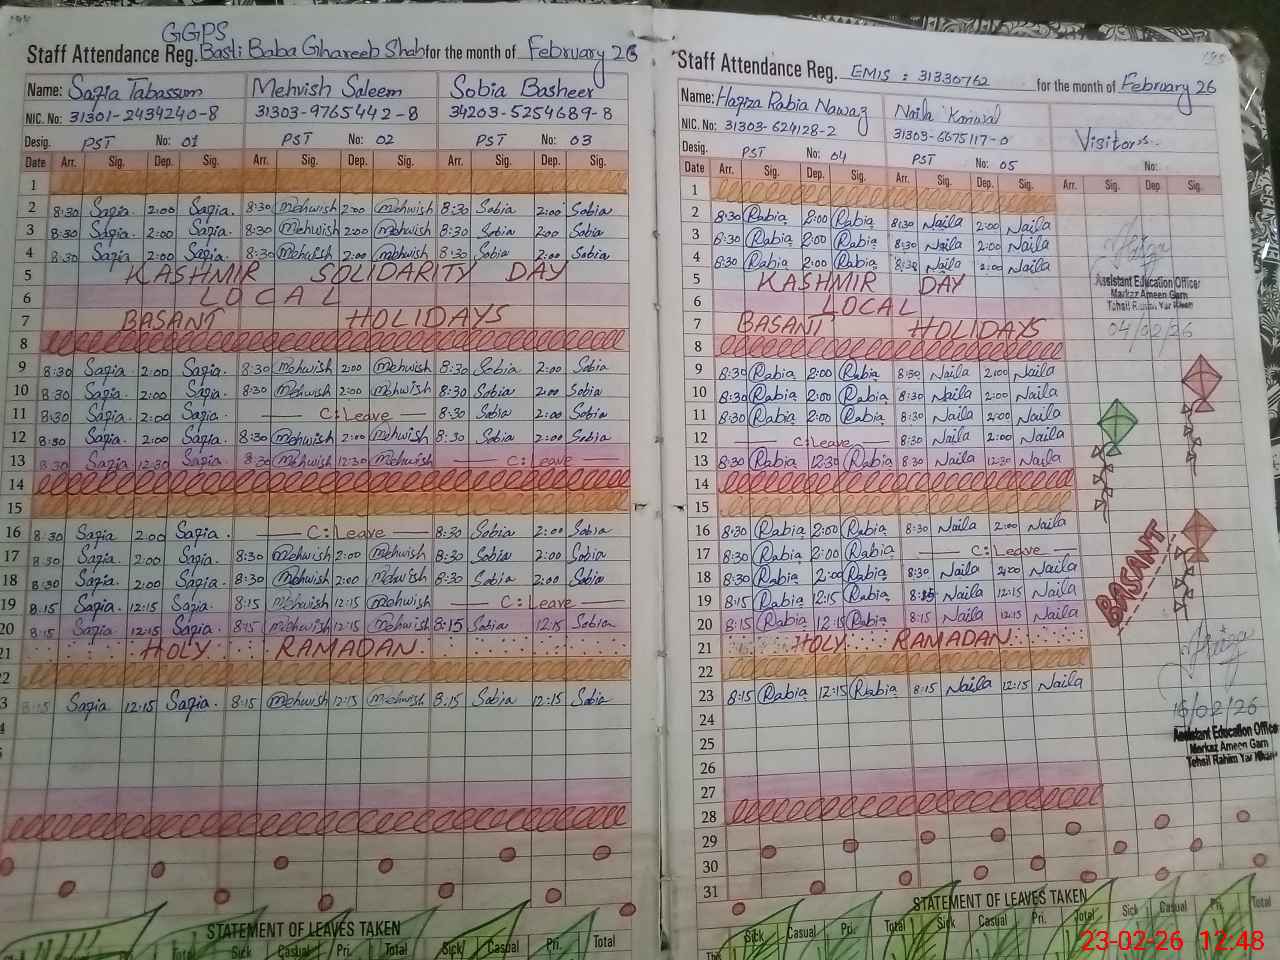 GGPS
Staff Attendance Reg. Basti Baba Ghareeb Shah for the month of February 26
Name: Sazia Tabassum Mehvish Saleem Sobia Basheer
NIC. No: 31301-2434240-8 31303-9765442-8 34203-5254689-8
Desig. PST No: 01 PST No: 02 PST No: 03
Date Arr. Sig. Dep. Sig. Arr. Sig. Dep. Sig. Arr. Sig. Dep. Sig.
1
2 8:30 Sazia. 2:00 Sazia. 8:30 Mehwish 2:00 Mehwish 8:30 Sobia 2:00 Sobia
3 8:30 Sazia. 2:00 Sazia. 8:30 Mehwish 2:00 Mehwish 8:30 Sobia 2:00 Sobia
4 8:30 Sazia. 2:00 Sazia. 8:30 Mehwish 2:00 Mehwish 8:30 Sobia 2:00 Sobia
5 KASHMIR SOLIDARITY DAY
6 LOCAL
7 BASANT HOLIDAYS
8
9 8:30 Sazia. 2:00 Sazia. 8:30 Mehwish 2:00 Mehwish 8:30 Sobia 2:00 Sobia
10 8:30 Sazia. 2:00 Sazia. 8:30 Mehwish 2:00 Mehwish 8:30 Sobia 2:00 Sobia
11 8:30 Sazia. 2:00 Sazia. C:Leave 8:30 Sobia 2:00 Sobia
12 8:30 Sazia. 2:00 Sazia. 8:30 Mehwish 2:00 Mehwish 8:30 Sobia 2:00 Sobia
13 8:30 Sazia. 12:30 Sazia. 8:30 Mehwish 12:30 Mehwish C:Leave
14
15
16 8:30 Sazia 2:00 Sazia. C:Leave 8:30 Sobia 2:00 Sobia
17 8:30 Sazia. 2:00 Sazia. 8:30 Mehwish 2:00 Mehwish 8:30 Sobia 2:00 Sobia
18 8:30 Sazia. 2:00 Sazia. 8:30 Mehwish 2:00 Mehwish 8:30 Sobia 2:00 Sobia
19 8:15 Sazia. 12:15 Sazia. 8:15 Mehwish 12:15 Mehwish C:Leave
20 8:15 Sazia. 12:15 Sazia. 8:15 Mehwish 12:15 Mehwish 8:15 Sobia 12:15 Sobia
21 HOLY RAMADAN
22
3 8:15 Sazia 12:15 Sazia. 8:15 Mehwish 12:15 Mehwish 8:15 Sobia 12:15 Sobia
4
STATEMENT OF LEAVES TAKEN
Total Sick Casual Pri. Total Sick Casual Pri. Total
Staff Attendance Reg. EMIS : 31330762 for the month of February 26
Name: Hafiza Rabia Nawaz Naila Kanwal
NIC. No: 31303-624128-2 31303-6675117-0 Visitors.
Desig. PST No: 04 PST No: 05 No:
Date Arr. Sig. Dep. Sig. Arr. Sig. Dep. Sig. Arr. Sig. Dep. Sig.
1
2 8:30 Rabia 2:00 Rabia 8:30 Naila 2:00 Naila
3 8:30 Rabia 2:00 Rabia 8:30 Naila 2:00 Naila
4 8:30 Rabia 2:00 Rabia 8:30 Naila 2:00 Naila
5 KASHMIR DAY
Assistant Education Officer
Markaz Ameen Garh
Tehsil Rahim Yar Khan
04/02/26
6 LOCAL
7 BASANT HOLIDAYS
8
9 8:30 Rabia 2:00 Rabia 8:30 Naila 2:00 Naila
10 8:30 Rabia 2:00 Rabia 8:30 Naila 2:00 Naila
11 8:30 Rabia 2:00 Rabia 8:30 Naila 2:00 Naila
12 C:Leave 8:30 Naila 2:00 Naila
13 8:30 Rabia 12:30 Rabia 8:30 Naila 12:30 Naila
14
15
16 8:30 Rabia 2:00 Rabia 8:30 Naila 2:00 Naila
17 8:30 Rabia 2:00 Rabia C:Leave
18 8:30 Rabia 2:00 Rabia 8:30 Naila 2:00 Naila
19 8:15 Rabia 12:15 Rabia 8:15 Naila 12:15 Naila
20 8:15 Rabia 12:15 Rabia 8:15 Naila 12:15 Naila
BASANT
21 HOLY RAMADAN
22
23 8:15 Rabia 12:15 Rabia 8:15 Naila 12:15 Naila
24
16/02/26
Assistant Education Office
Markaz Ameen Garh
Tehsil Rahim Yar Khan
25
26
27
28
29
30
31
STATEMENT OF LEAVES TAKEN
Sick Casual Pri. Total Sick Casual Pri. Total Sick Casual Pri. Total
23-02-26 12:48